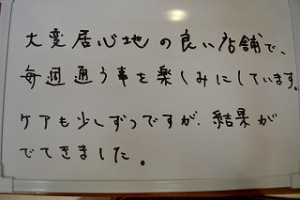 大変居心地の良い店舗で、
毎週通う事を楽しみにしています。
ケアも少しずつですが、結果が
でてきました。